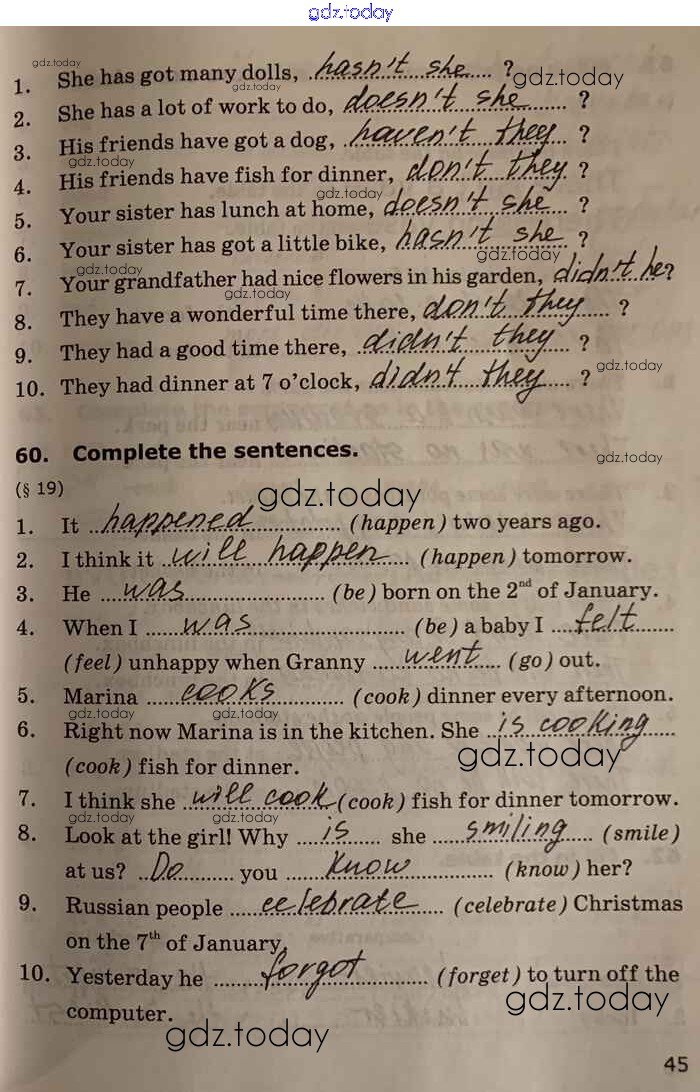 gdz.today
gdz.today
1. She has got many dolls, hasn't she ?
gdz.today
gdz.today
2. She has a lot of work to do, doesn't she ?
3. His friends have got a dog, haven't they ?
gdz.today
4. His friends have fish for dinner, don't they ?
gdz.today
5. Your sister has lunch at home, doesn't she ?
6. Your sister has got a little bike, hasn't she ?
gdz.today
gdz.today
7. Your grandfather had nice flowers in his garden, didn't he?
gdz.today
8. They have a wonderful time there, don't they ?
9. They had a good time there, didn't they ?
gdz.today
10. They had dinner at 7 o'clock, didn't they ?
60. Complete the sentences.
gdz.today
(§ 19)
gdz.today
1. It happened (happen) two years ago.
2. I think it will happen (happen) tomorrow.
3. He was (be) born on the 2nd of January.
4. When I was (be) a baby I felt
(feel) unhappy when Granny went (go) out.
5. Marina cooks (cook) dinner every afternoon.
gdz.today
gdz.today
6. Right now Marina is in the kitchen. She is cooking
gdz.today
(cook) fish for dinner.
7. I think she will cook (cook) fish for dinner tomorrow.
gdz.today
gdz.today
8. Look at the girl! Why is she smiling (smile)
at us? Do you know (know) her?
9. Russian people celebrate (celebrate) Christmas
on the 7th of January.
10. Yesterday he forgot (forget) to turn off the
computer.
gdz.today
gdz.today
45